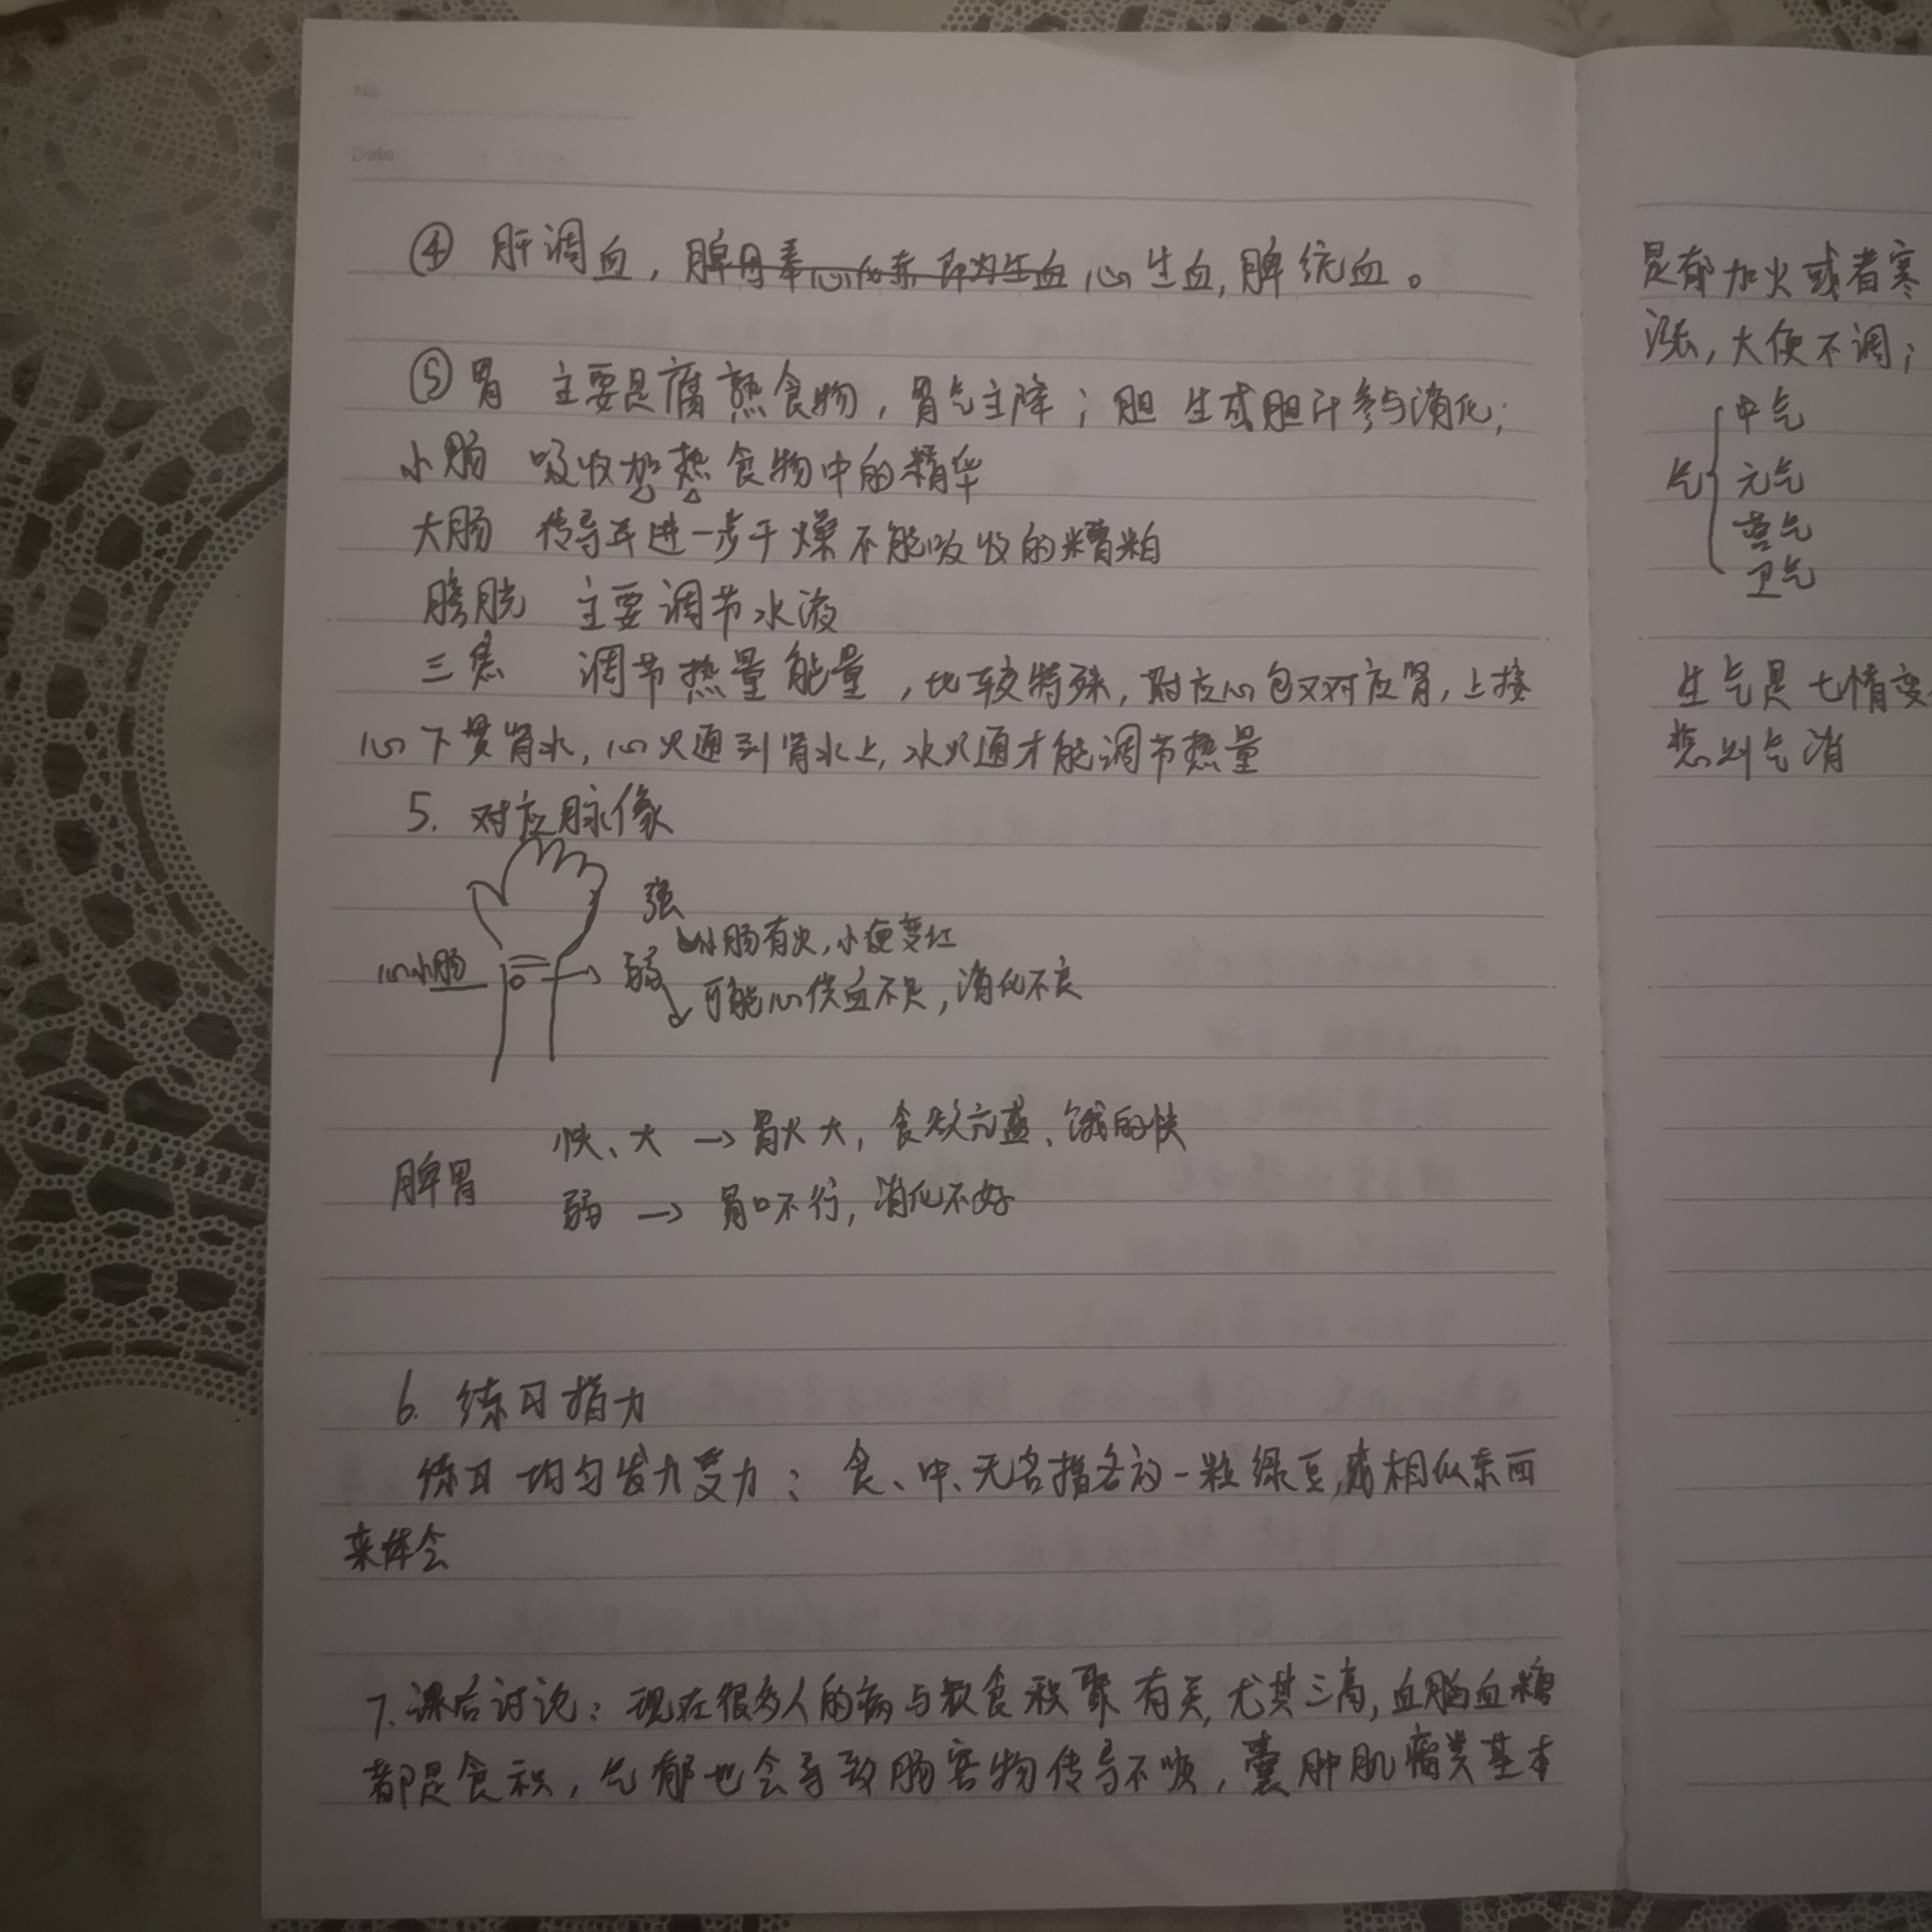 No
Date
④ 肝调血，脾 心生血，脾统血。
⑤ 胃 主要是腐熟食物，胃气主降；胆 生成胆汁参与消化；
小肠 吸收加热食物中的精华
大肠 传导并进一步干燥不能吸收的糟粕
膀胱 主要调节水液
三焦 调节热量能量，比较特殊，对应心包又对应肾，上接
心下贯肾水，心火通到肾水上，水火通才能调节热量
5. 对应脉像
强
小肠有火，小便变红
心小肠
弱
可能心供血不足，消化不良
快、大 → 胃火大，食欲亢盛、饿的快
脾胃
弱 → 胃口不行，消化不好
6. 练习指力
练习 均匀发力受力：食、中、无名指各放一粒绿豆，或相似东西
来体会
7. 课后讨论：现在很多人的病与饮食积聚有关，尤其三高，血脂血糖
都是食积，气郁也会导致肠 物传导不顺，囊肿肌瘤类基本
是郁加火或者寒
涨，大便不调；
气
中气
元气
营气
卫气
生气是七情变
悲则气消